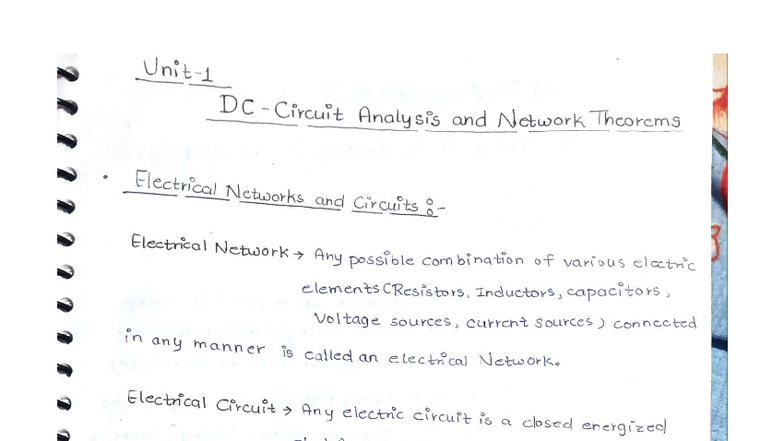 Unit-1
DC-Circuit Analysis and Network Theorems
• Electrical Networks and Circuits :-
Electrical Network → Any possible combination of various electric
elements (Resistors, Inductors, capacitors,
Voltage sources, current sources) connected
in any manner is called an electrical Network.
Electrical Circuit → Any electric circuit is a closed energized